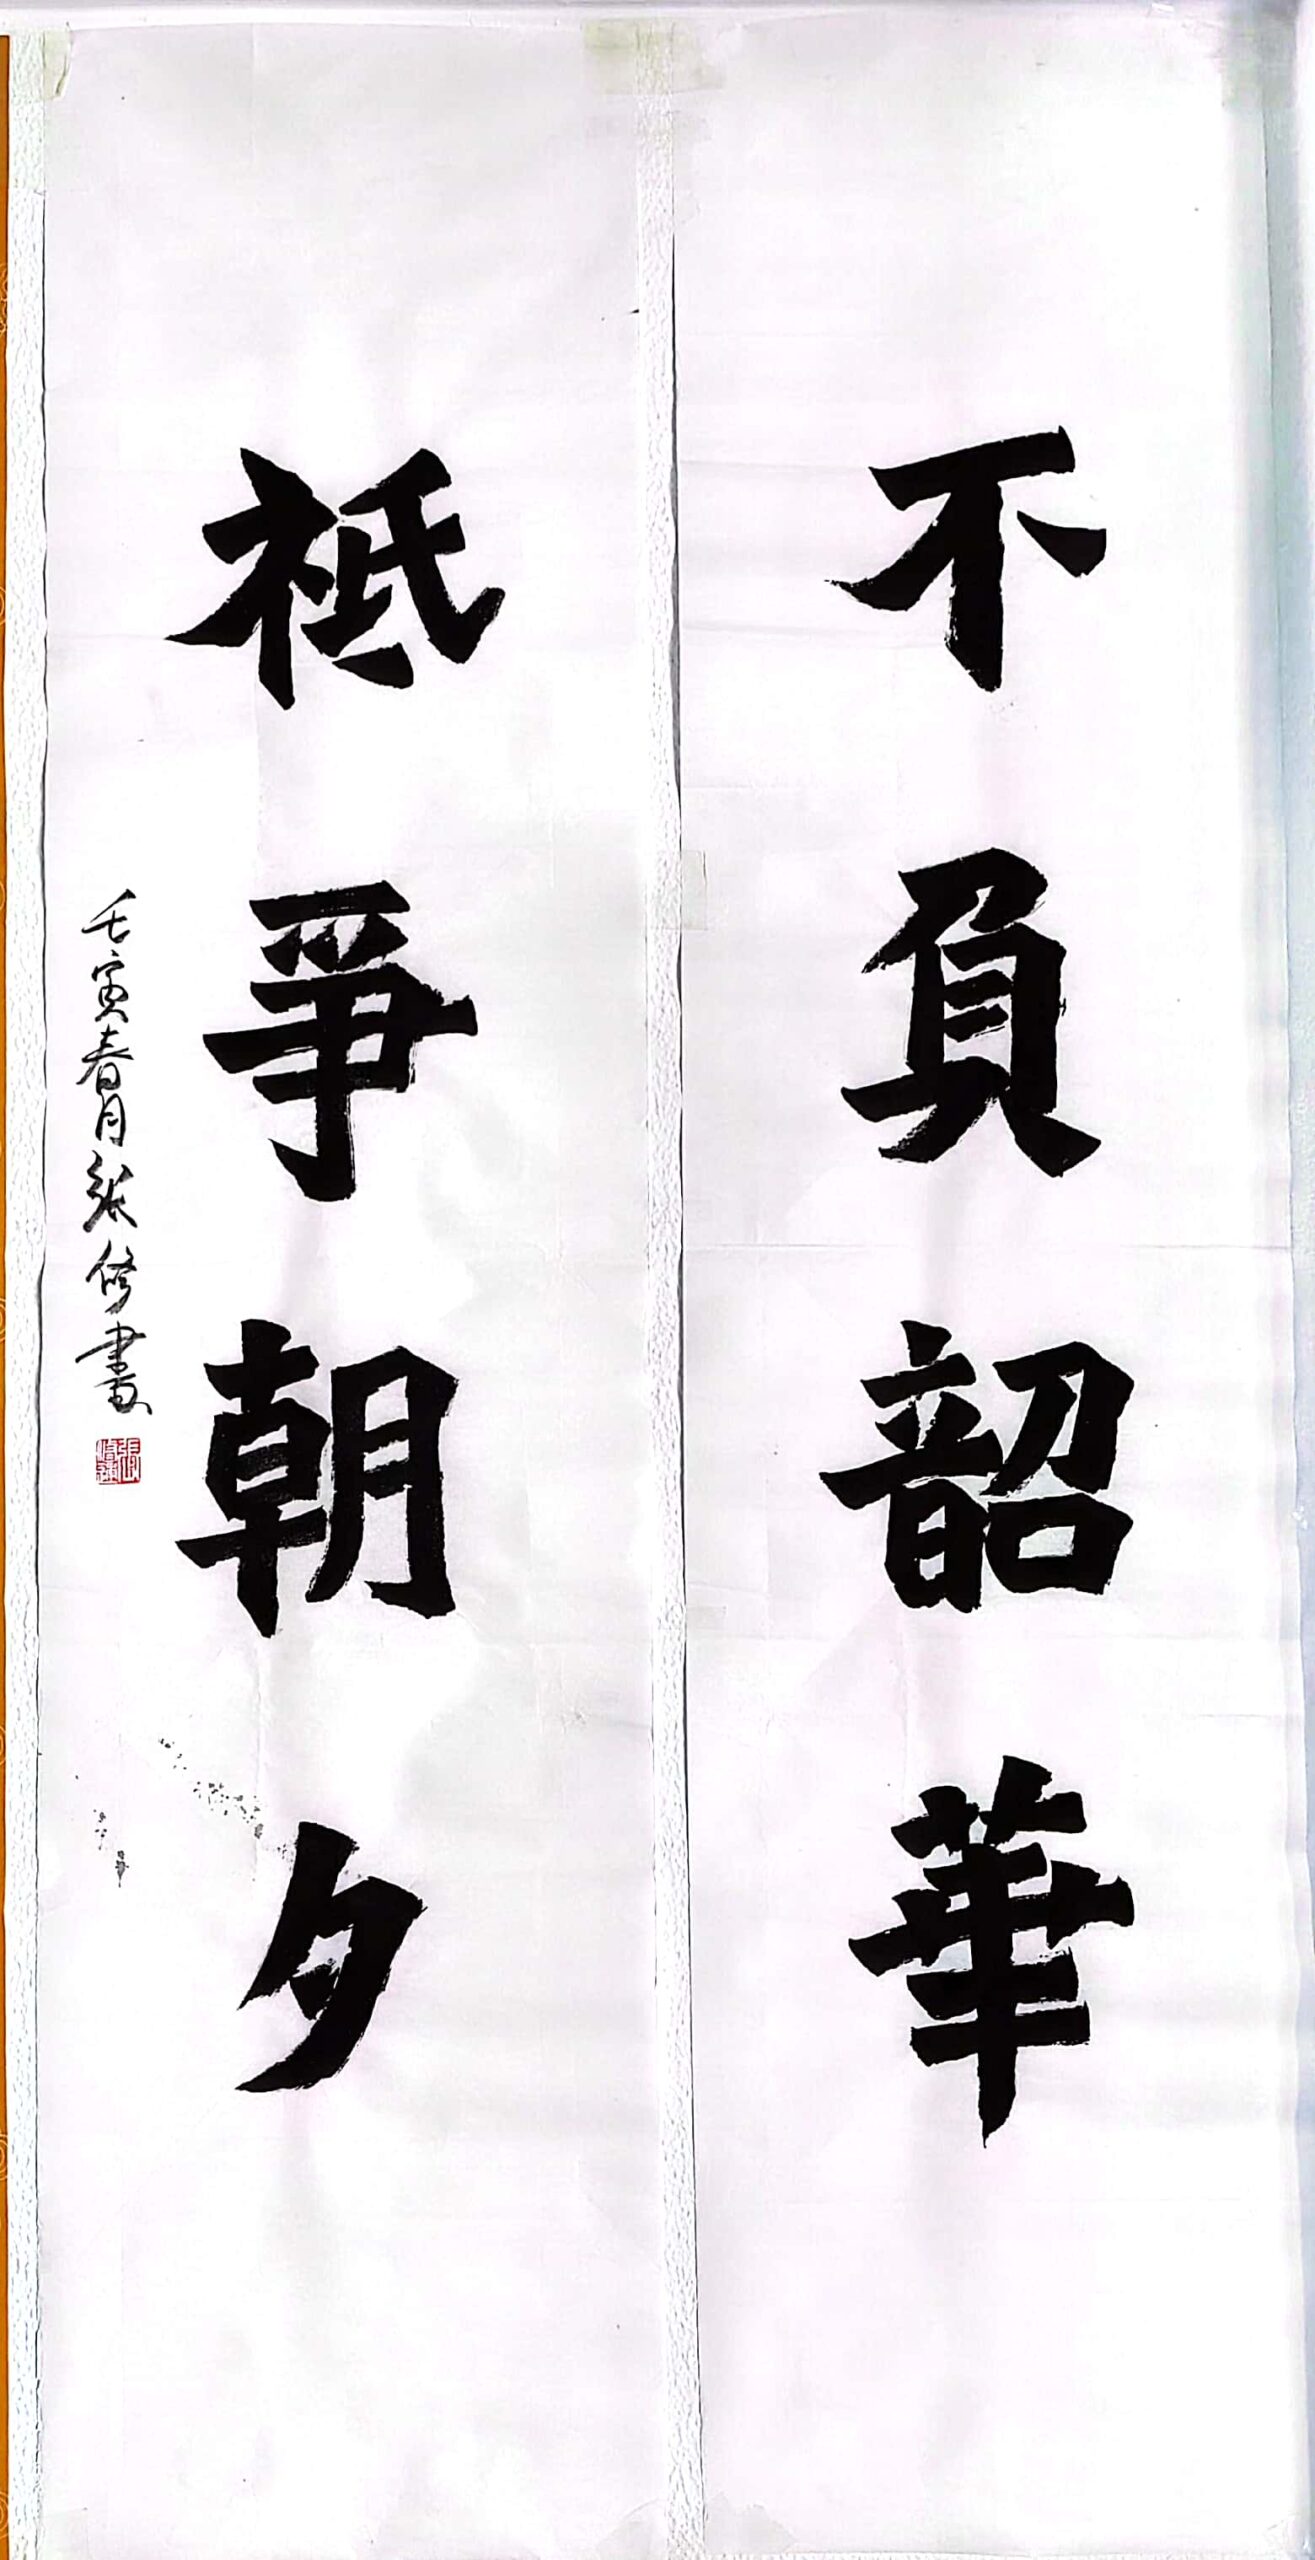 不負韶華
祗爭朝夕
壬寅春月張修書